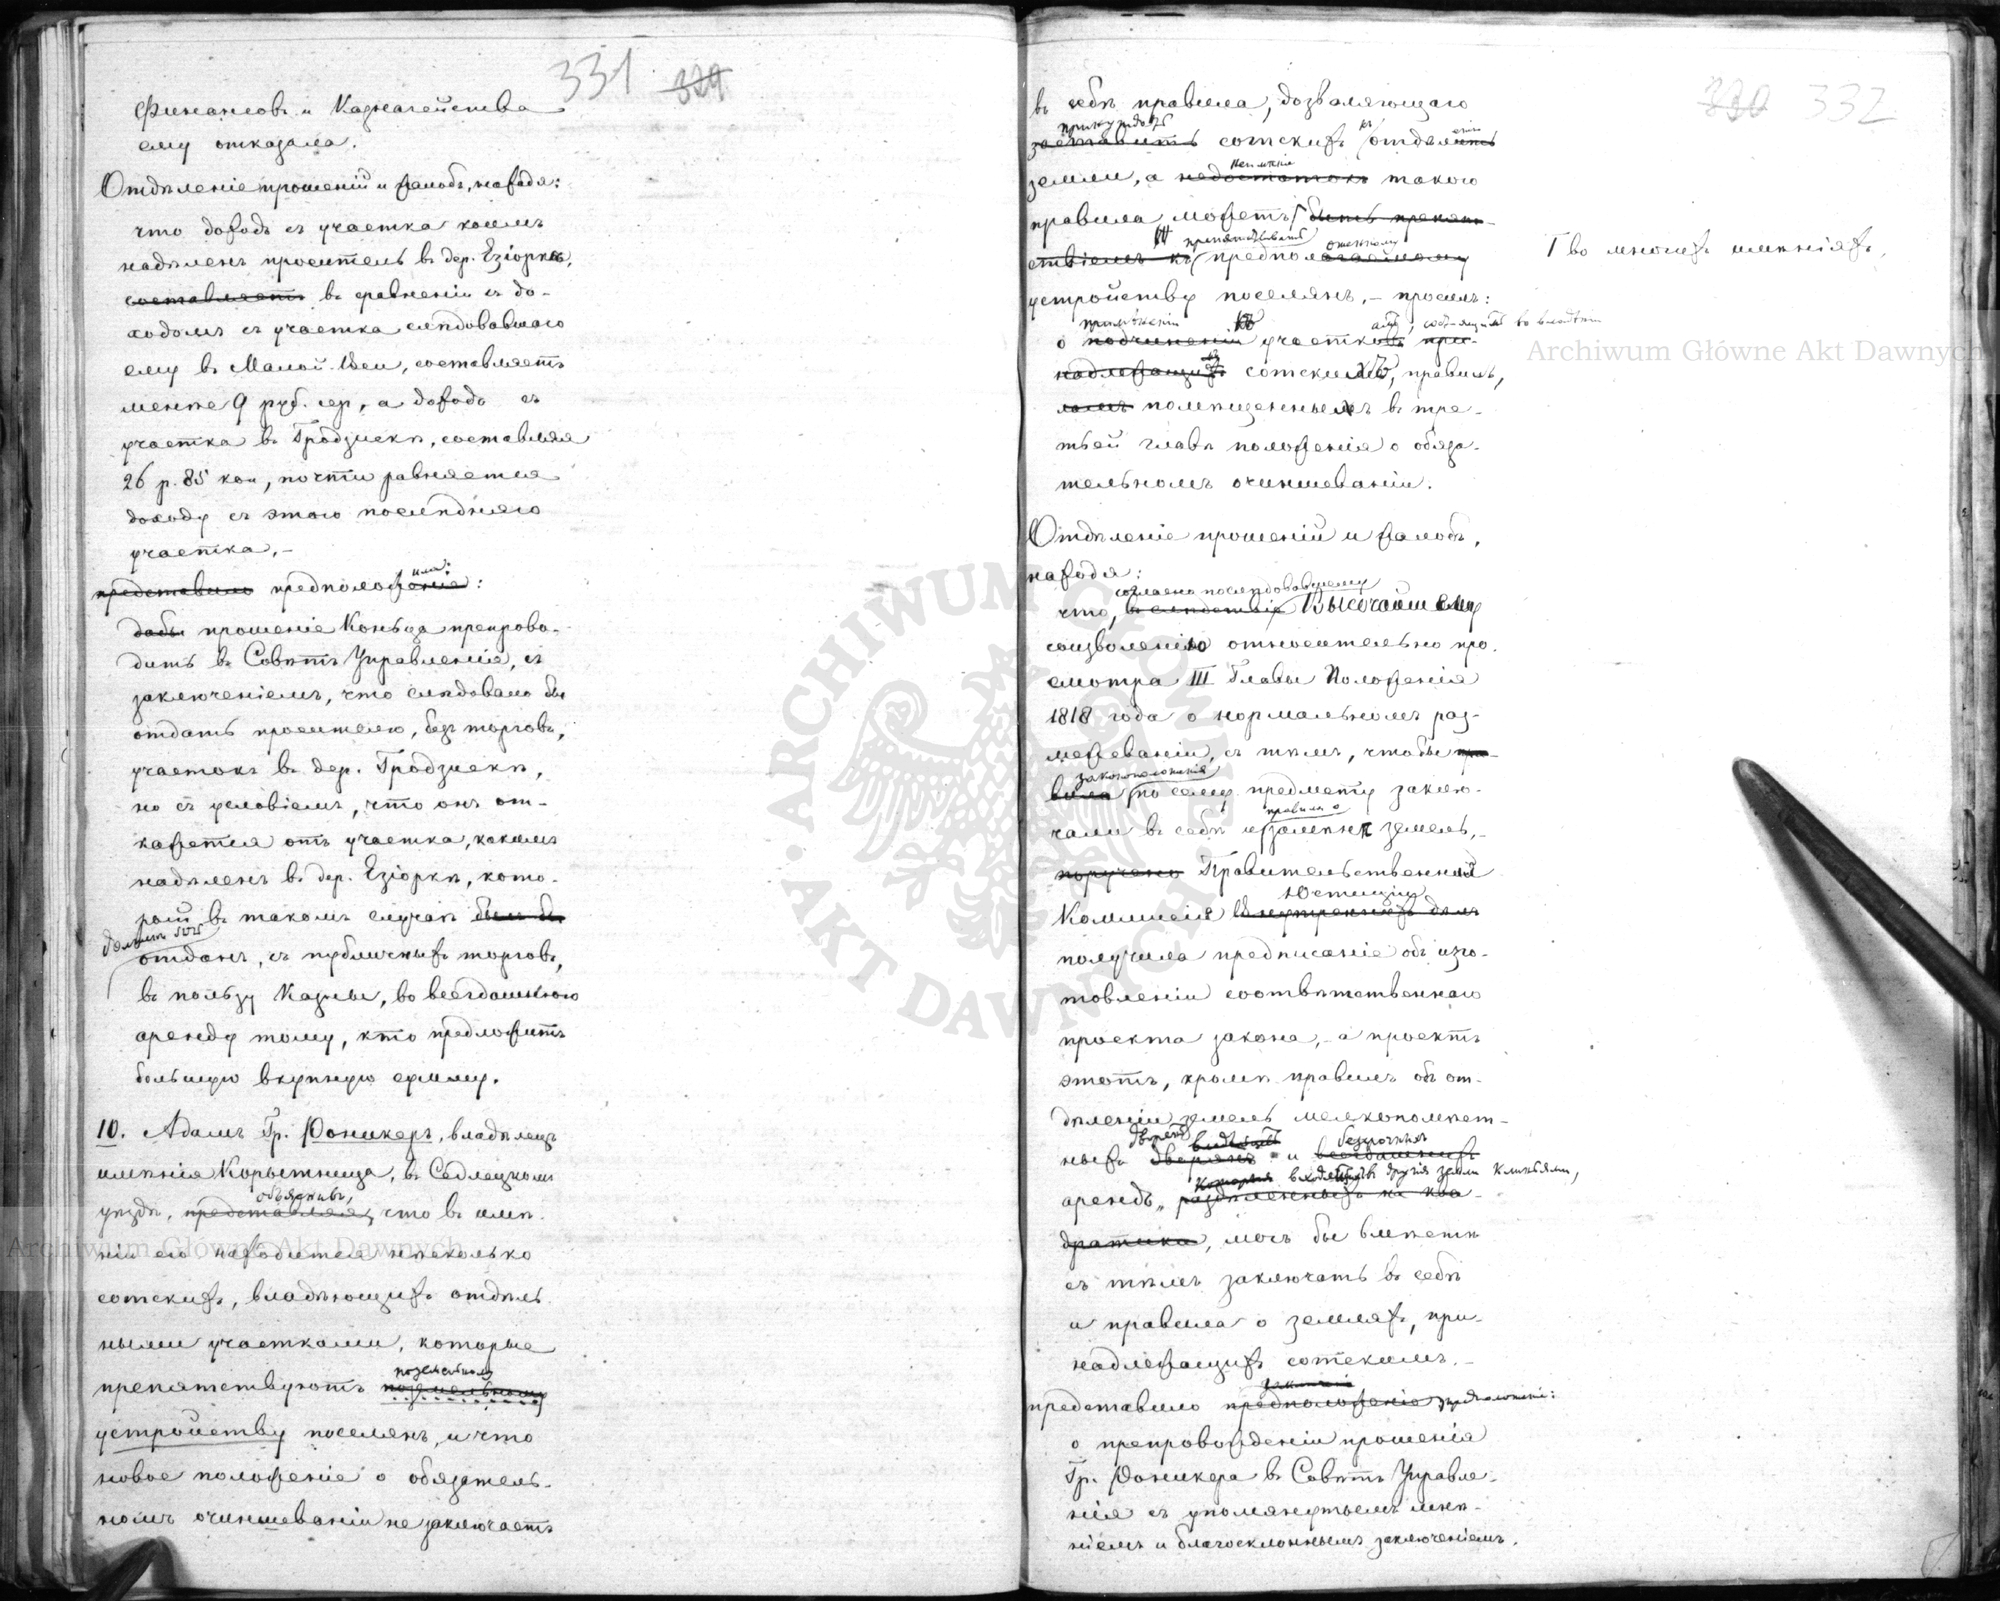 331 329
Финансовъ и Казначейства
ему отказала.
Отдѣленіе прошеній и жалобъ, находя:
что доходъ съ участка коимъ
надѣленъ проситель въ дер. Езіорки,
составляетъ въ сравненіи съ до-
ходомъ съ участка слѣдовавшаго
ему въ Малой Вси, составляетъ
менѣе 9 руб. сер, а доходъ съ
участка въ Гродзискѣ, составляя
26 р. 85 коп, почти равняется
доходу съ этого послѣдняго
участка,-
представило предположеніе:
дабы прошеніе Коньца препрово-
дить въ Совѣтъ Управленія, съ
заключеніемъ, что слѣдовало бы
отдать просителю, безъ торговъ,
участокъ въ дер. Гродзискѣ,
но съ условіемъ, что онъ от-
кажется отъ участка, коимъ
надѣленъ въ дер. Езіорки, кото-
рый въ такомъ случаѣ былъ бы
долженъ быть
отданъ, съ публичныхъ торговъ,
въ пользу Казны, во всегдашнюю
аренду тому, кто предложитъ
большую вкупную сумму.
10. Адамъ Гр. Роникеръ, владѣлецъ
имѣнія Корытница, въ Сѣдлецкомъ
объяснивъ,
уѣздѣ, представляя, что въ имѣ-
ніи его находится нѣсколько
сотскихъ, владѣющихъ отдѣль-
ными участками, которые
поземельному
препятствуютъ поземельному
устройству поселянъ, и что
новое положеніе о обязатель-
номъ очиншеваніи не заключаетъ
330 332
въ себѣ правила, дозволяющаго
принудить
заставить сотскихъ къ отдѣленію
неимѣніе
земли, а недостатокъ такого
правила можетъ быть препят-
Г во многихъ имѣніяхъ,
препятствовать
ствіемъ къ предполагаемому
устройству поселянъ,- проситъ:
примѣненіи
о подчиненіи участковъ при-
надлежащихъ сотскимъ, правилъ,
помѣщенныхъ въ тре-
тьей главѣ положенія о обяза-
тельномъ очиншеваніи.
Отдѣленіе прошеній и жалобъ,
находя:
согласно послѣдовавшему
что, вслѣдствіе Высочайшему
соизволенію относительно про-
смотра III Главы Положенія
1818 года о нормальномъ раз-
межеваніи, съ тѣмъ, чтобы пра-
законоположенія
вила по сему предмету заклю-
правила о
чали въ себѣ и замѣнѣ земель,-
поручено Правительственная
Юстиціи
Коммисія Внутреннихъ дѣлъ
получила предписаніе объ изго-
товленіи соотвѣтственнаго
проекта закона,- а проектъ
этотъ, кромѣ правилъ объ от-
дѣленіи земель мелкопомѣст-
безсрочныхъ
ныхъ дворянъ и всегдашнихъ
входящихъ въ другія земли клиньями,
арендъ, раздѣленныхъ на ква-
драты, могъ бы вмѣстѣ
съ тѣмъ заключать въ себѣ
и правила о земляхъ, при-
надлежащихъ сотскимъ,-
представило предположеніе
о препровожденіи прошенія
Гр. Роникера въ Совѣтъ Управле-
нія съ упомянутымъ мнѣ-
ніемъ и благосклоннымъ заключеніемъ.
Archiwum Główne Akt Dawnych
Archiwum Główne Akt Dawnych
ARCHIWUM GŁÓWNE AKT DAWNYCH